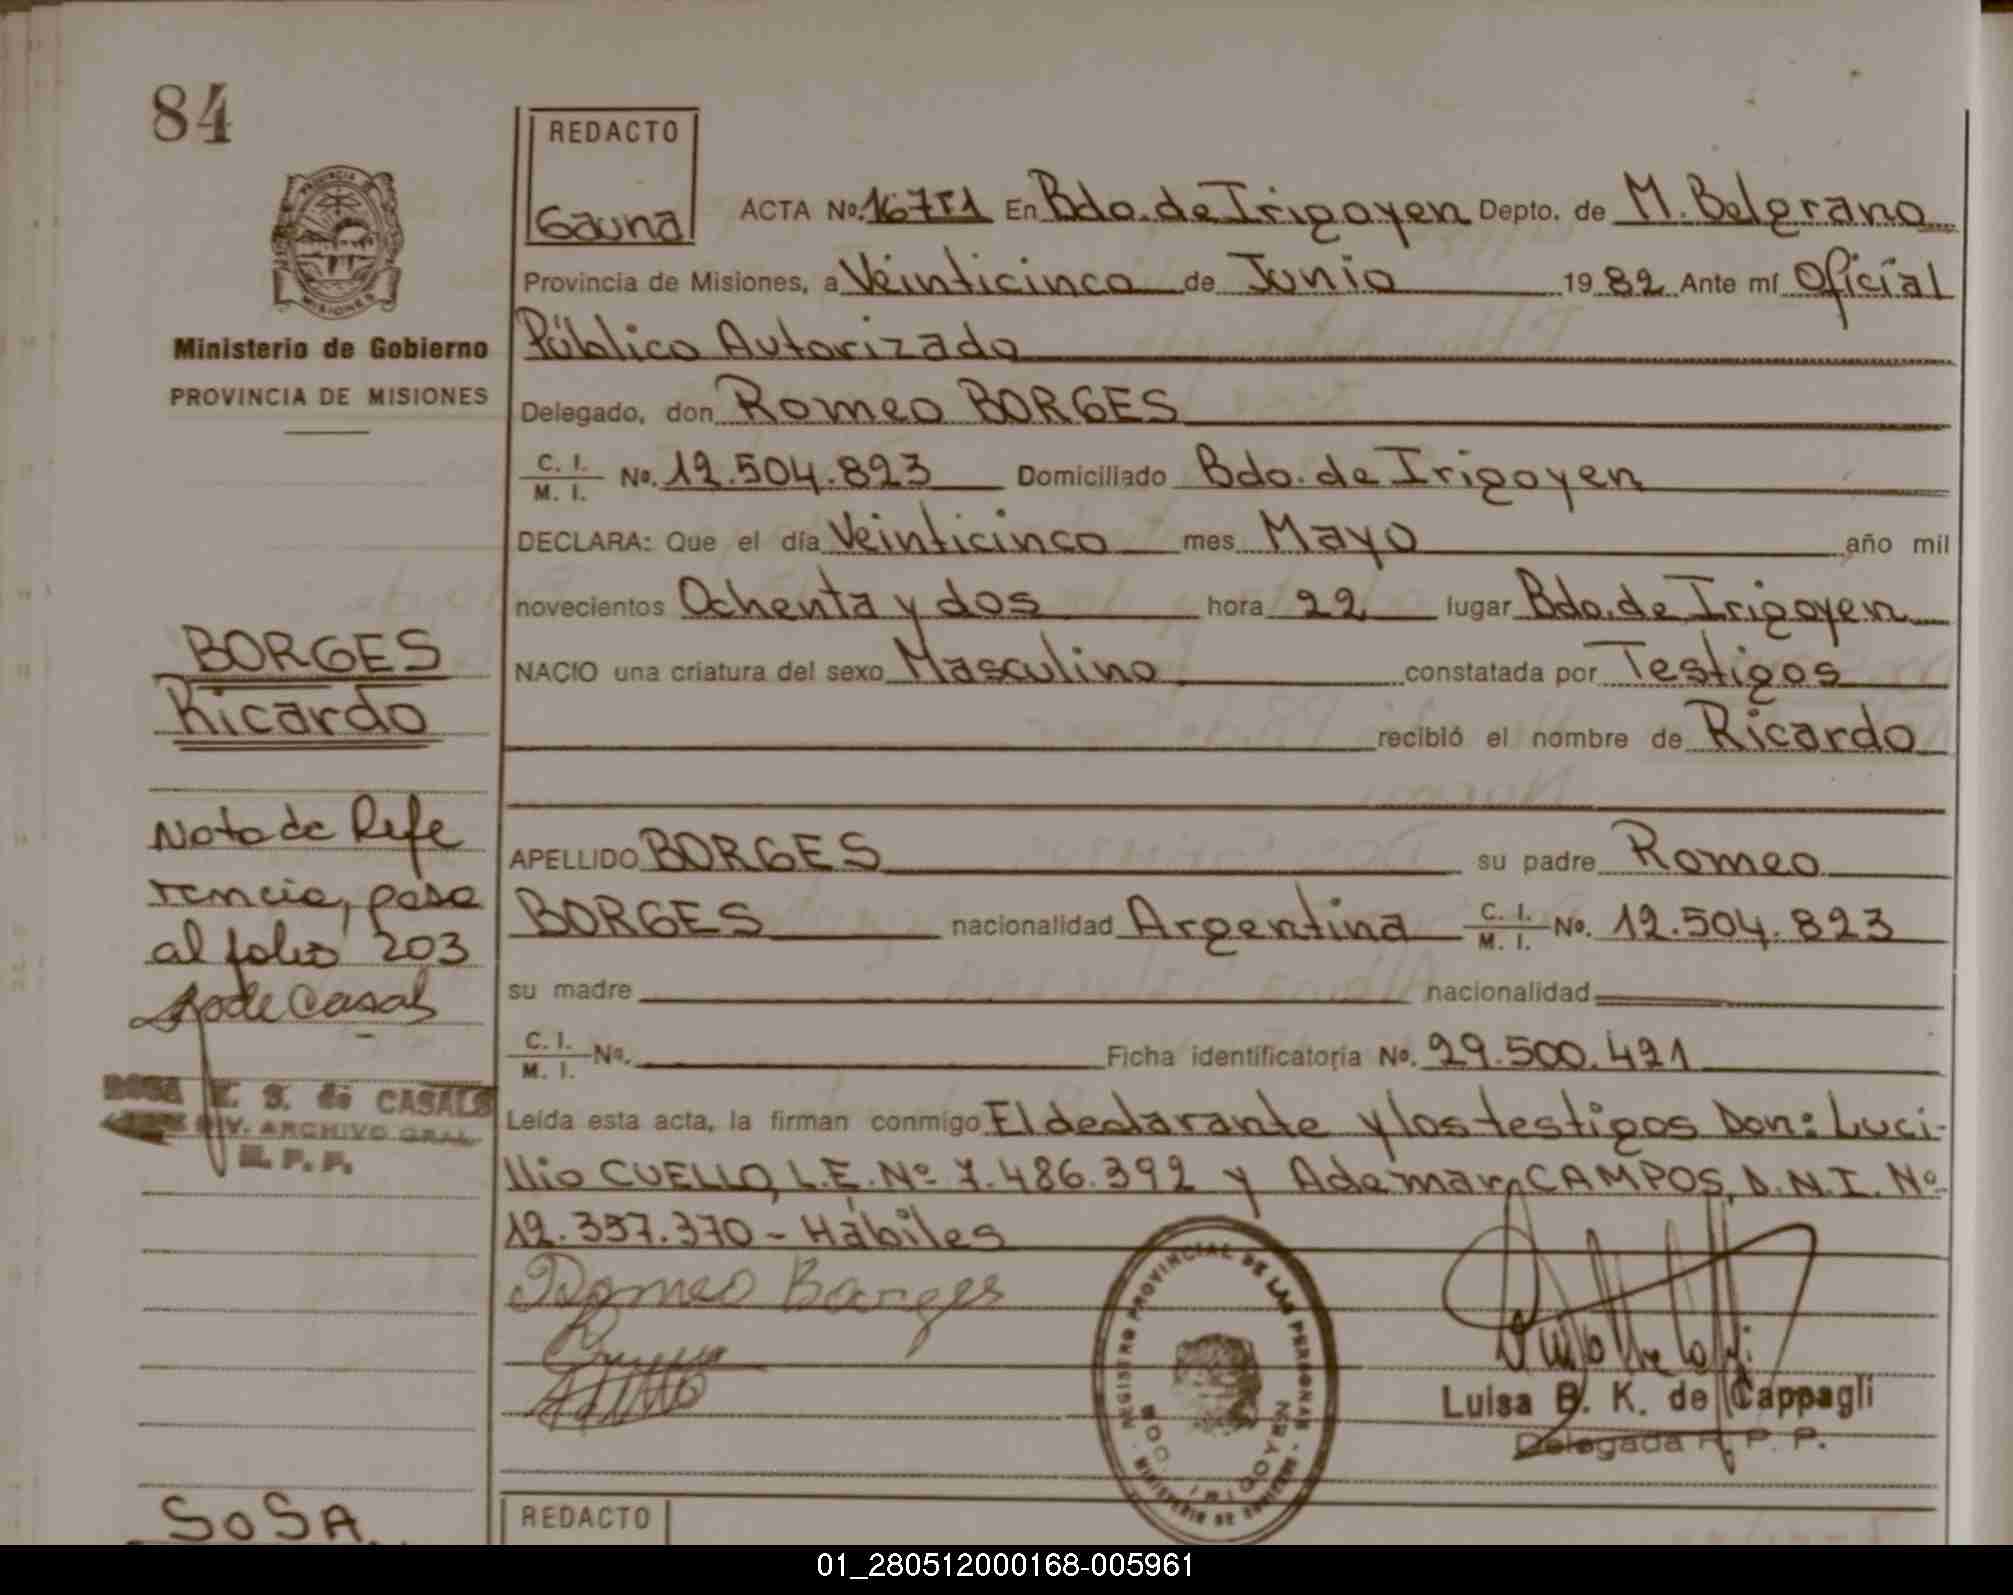 84
REDACTO
Gauna
ACTA No. 16751 En Bdo. de Irigoyen Depto. de M. Belgrano
Provincia de Misiones, a Veinticinco de Junio 1982 Ante mí Oficial
Público Autorizado
Delegado, don Romeo BORGES
C. I. / M. I. No. 12.504.823 Domiciliado Bdo. de Irigoyen
DECLARA: Que el día Veinticinco mes Mayo año mil
novecientos Ochenta y dos hora 22 lugar Bdo. de Irigoyen
NACIO una criatura del sexo Masculino constatada por Testigos
recibió el nombre de Ricardo
APELLIDO BORGES su padre Romeo
BORGES nacionalidad Argentina C. I. / M. I. No. 12.504.823
su madre nacionalidad
C. I. / M. I. No. Ficha identificatoria No. 29.500.421
Leída esta acta, la firman conmigo El declarante y los testigos Don: Luci-
llio CUELLO, L.E. Nº 7.486.392 y Ademar CAMPOS, D.N.I. Nº
12.357.370 - Hábiles
Romeo Borges
Luisa B. K. de Cappagli
Delegada R. P. P.
REGISTRO PROVINCIAL DE LAS PERSONAS
MINISTERIO DE GOBIERNO
BDO. IRIGOYEN
PROVINCIA DE
MISIONES
Ministerio de Gobierno
PROVINCIA DE MISIONES
BORGES
Ricardo
Nota de Refe
rencia, pasa
al folio 203
S. de CASALS
DIV. ARCHIVO GRAL.
R. P. P.
SOSA
REDACTO
01_280512000168-005961